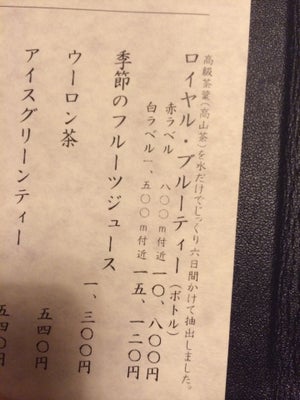 高級茶葉(高山茶)を水だけでじっくり六日間かけて抽出しました。
ロイヤル・ブルーティー(ボトル)
赤ラベル 八〇〇m付近 一〇、八〇〇円
白ラベル 一、五〇〇m付近 一五、一二〇円
季節のフルーツジュース 一、三〇〇円
ウーロン茶 五四〇円
アイスグリーンティー 五四〇円